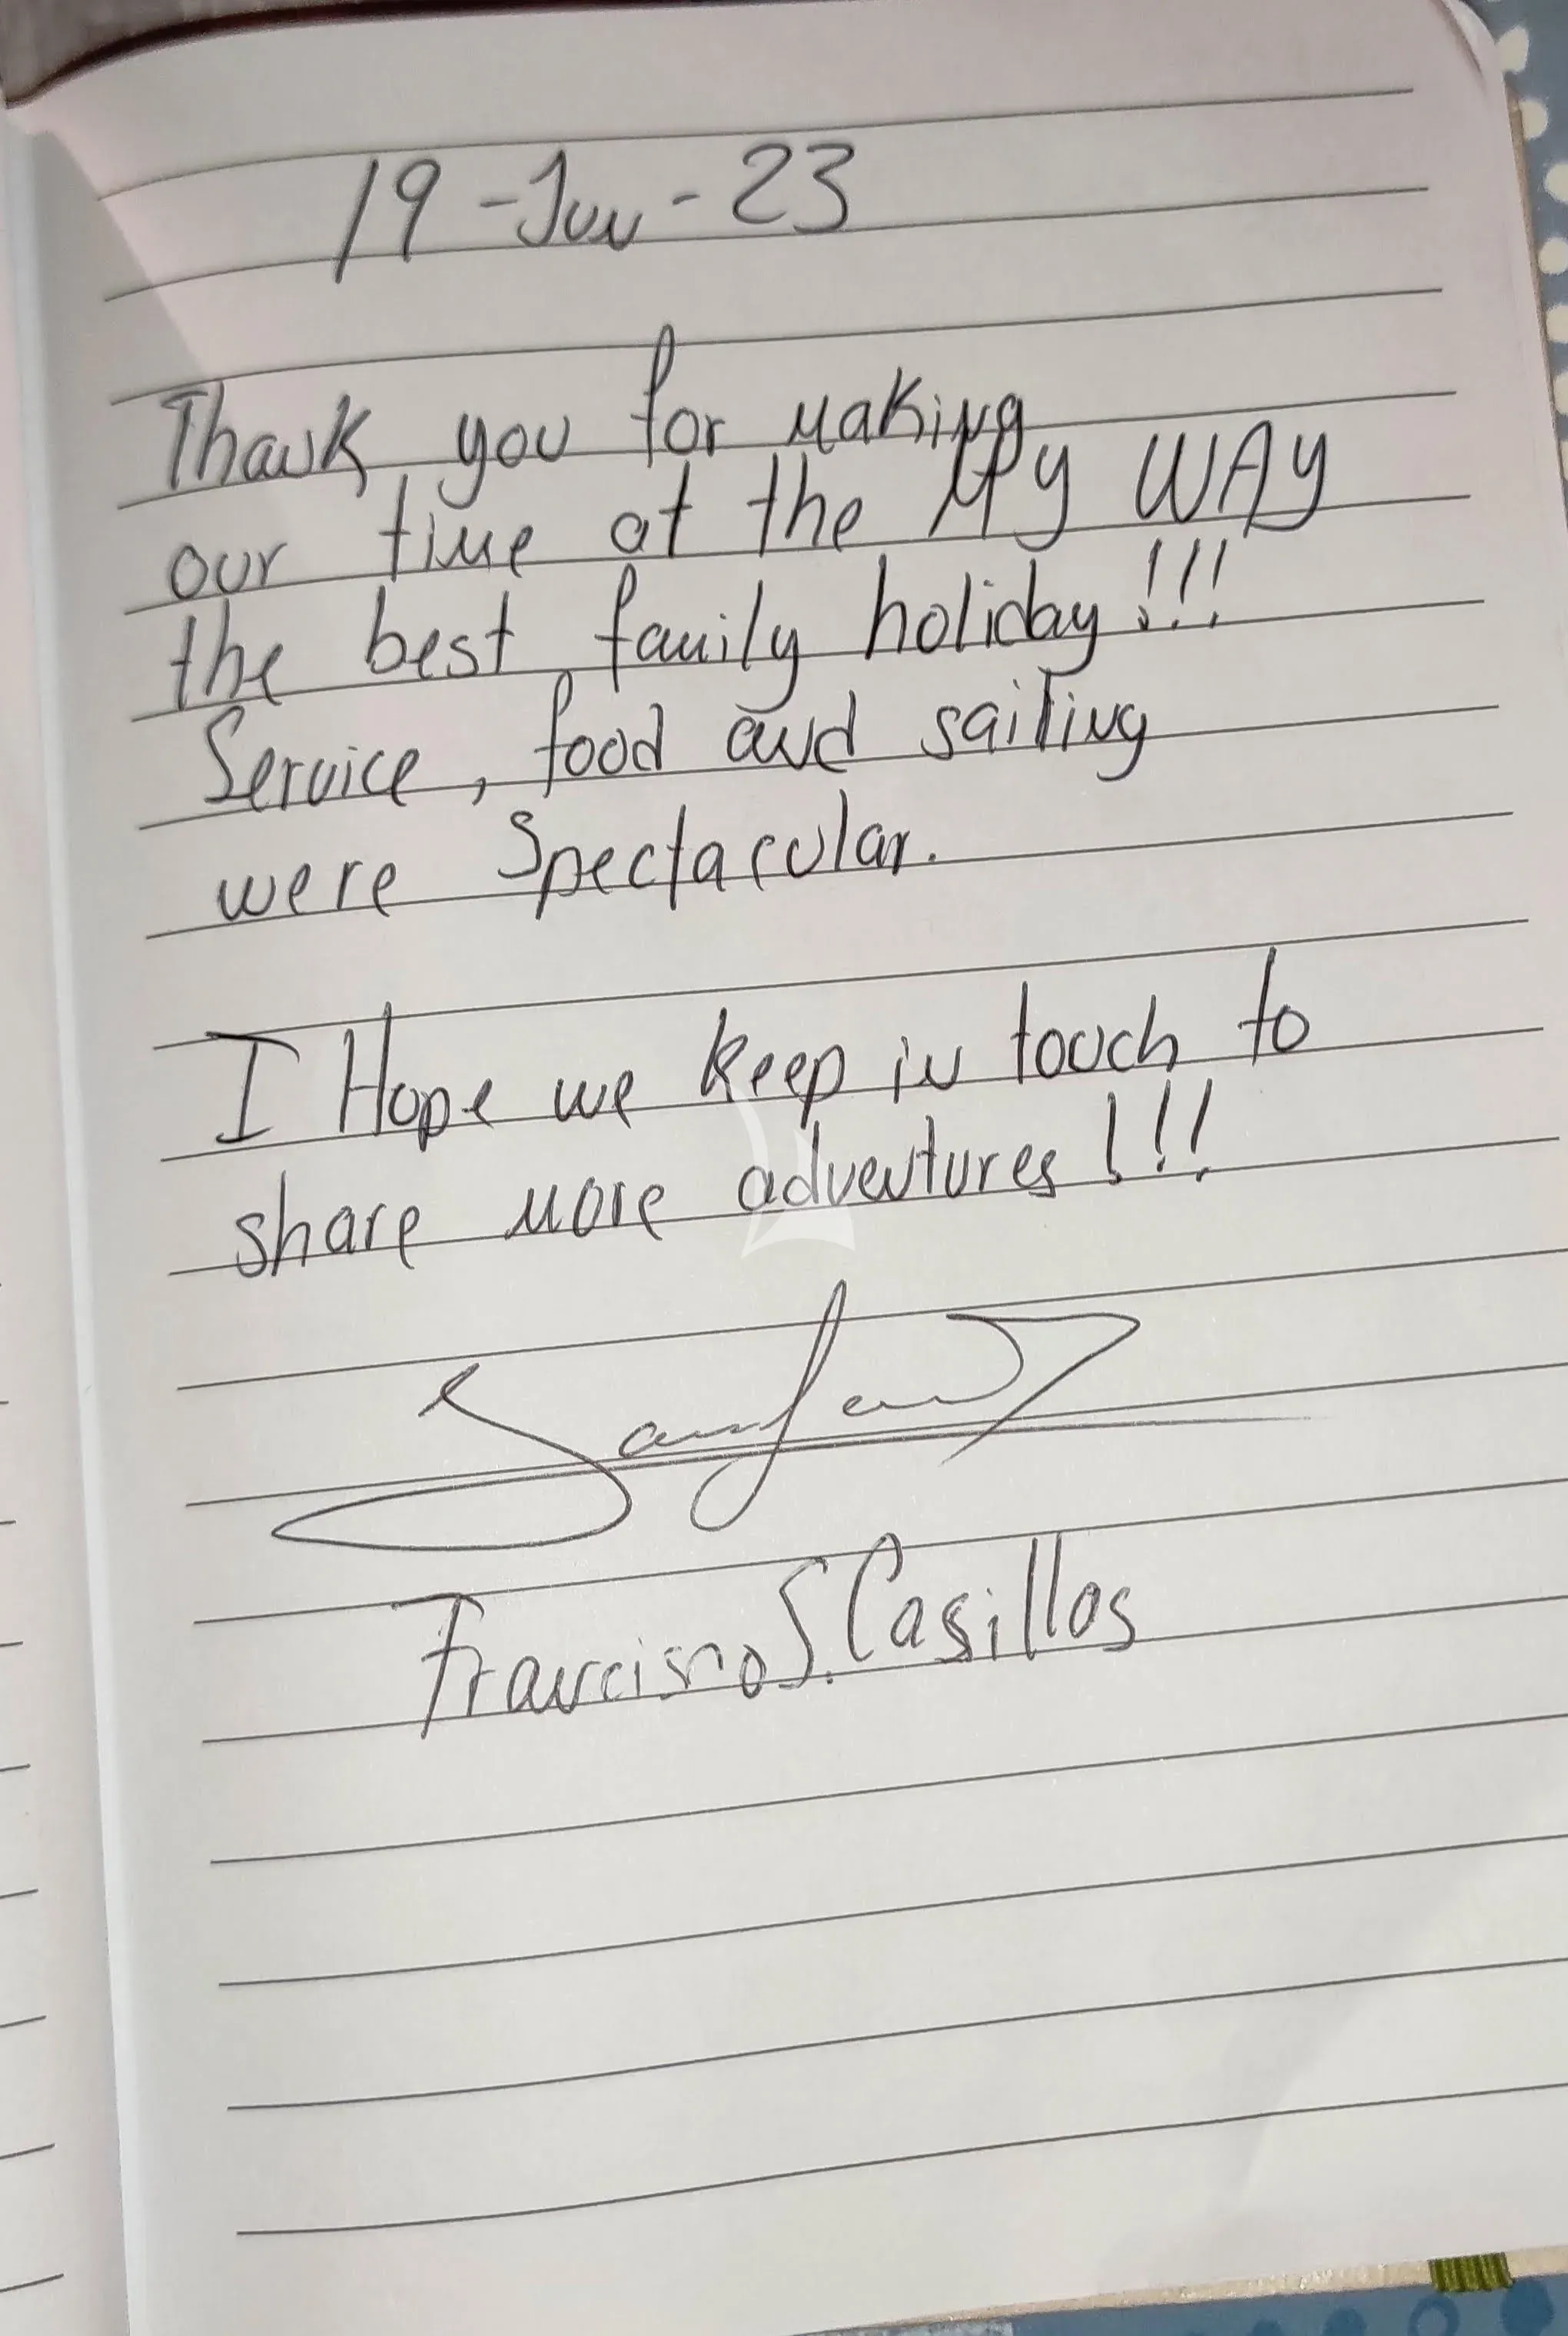 19-Jun-23
Thank you for making
our time at the MY WAY
the best family holiday!!!
Service, food and sailing
were Spectacular.
I Hope we keep in touch to
share more adventures!!!
S. Casillas